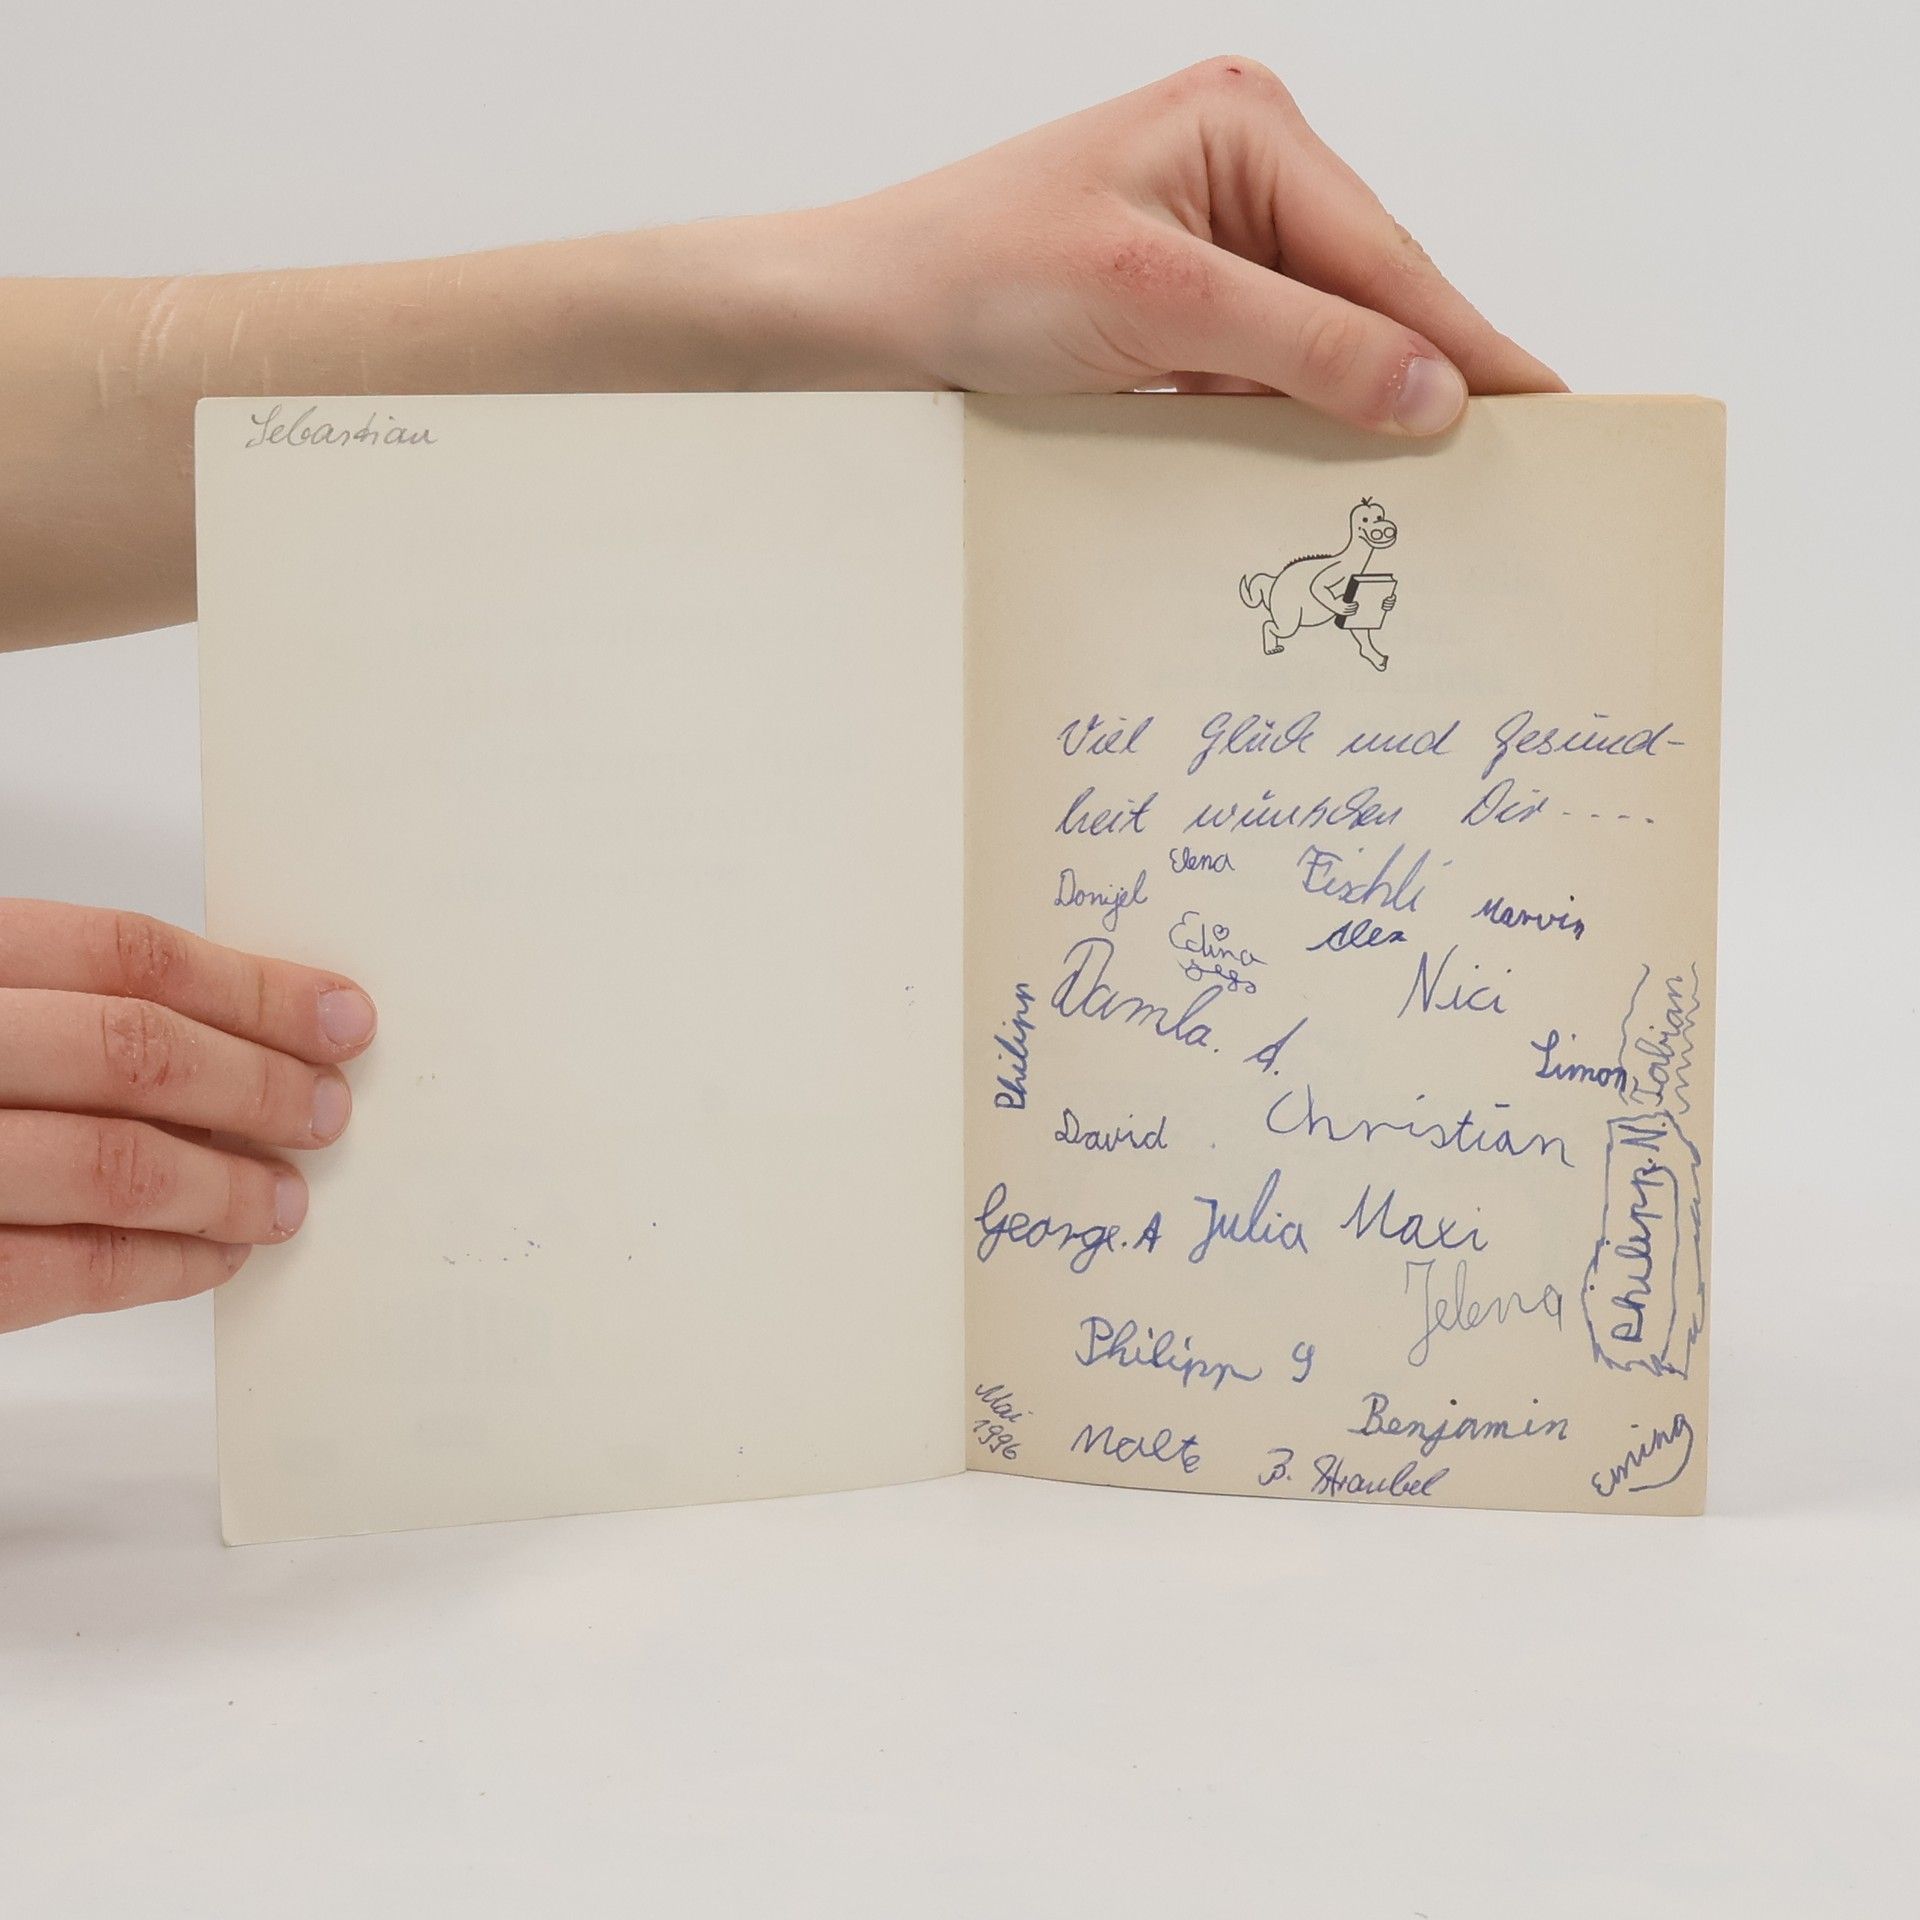 Sebastian
Viel Glück und Gesund-
heit wünschen Dir ----
Elena
Donijel
Fischli
Marvin
Edina
Alex
Damla. A.
Nici
Philipp
Simon
Fabian
David
Christian
Philipp. N.
George. A Julia Maxi
Jelena
Philipp S
Mai
1996
Malte
Benjamin
B. Straubel
Emina